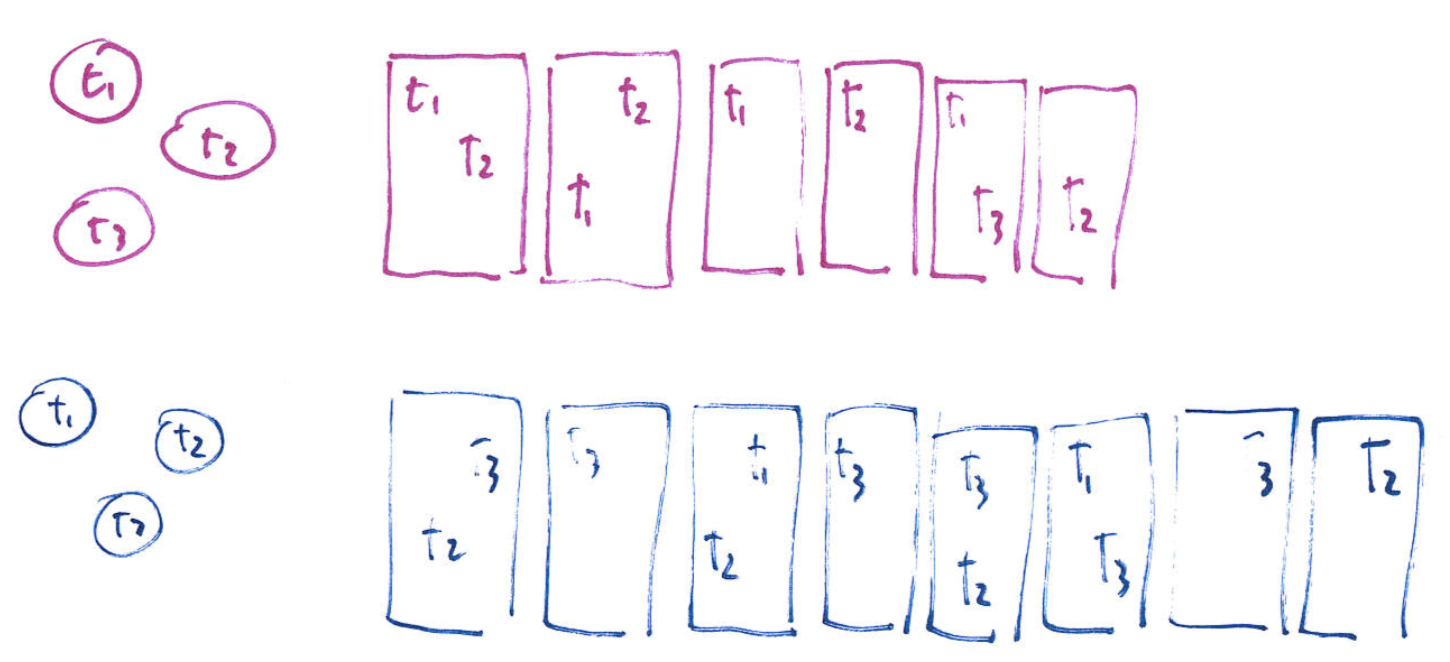 t1
t2
t3
t1 t2
t2 t1
t1
t2
t1 t3
t2
t1
t2
t3 t2
t3
t1 t2
t3
t3 t2
t1 t3
3
t2